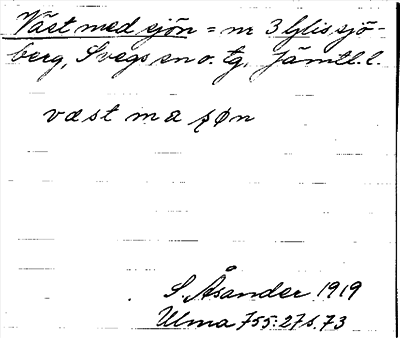 Väst med sjön = nr 3 Glissjö-
berg, Svegs sn o. tg, Jämtl. l.
væst ma ʂøn
S. Åsander 1919
Ulma 755:27 s. 73